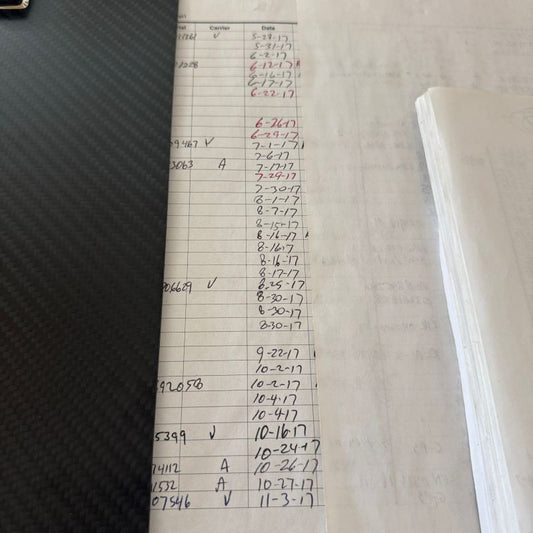 Carrier Date
V 5-28-17
5-31-17
6-2-17
6-12-17
6-16-17
6-17-17
6-22-17
6-26-17
6-29-17
9467 V 7-1-17
7-6-17
3063 A 7-17-17
7-29-17
7-30-17
8-1-17
8-7-17
8-15-17
8-16-17
8-16-17
8-16-17
8-17-17
06629 V 8-25-17
8-30-17
8-30-17
8-30-17
9-22-17
10-2-17
92058 10-2-17
10-4-17
10-4-17
5399 V 10-16-17
10-24-17
74112 A 10-26-17
1532 A 10-27-17
07546 V 11-3-17